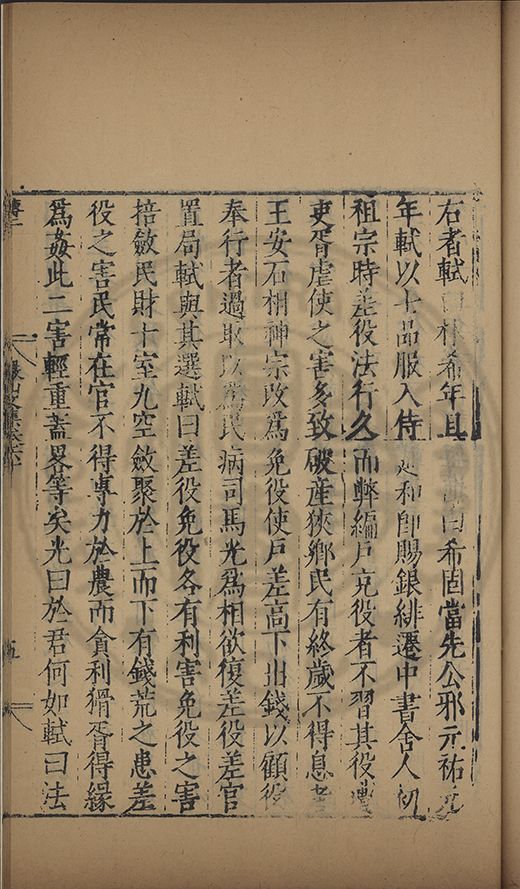 右者軾曰林希年且曰希固當先公邪元祐元
年軾以七品服入侍延和即賜銀緋遷中書舍人初
祖宗時差役法行久而弊編戶充役者不習其役
吏胥虐使之害多致破產狹鄉民有終歲不得息者
王安石相神宗改為免役使戶差高下出錢以顧役
奉行者過取以為民病司馬光為相欲復差役差官
置局軾與其選軾曰差役免役各有利害免役之害
掊斂民財十室九空斂聚於上而下有錢荒之患差
役之害民常在官不得專力於農而貪利猾胥得緣
為姦此二害輕重蓋畧等矣光曰於君何如軾曰法
五